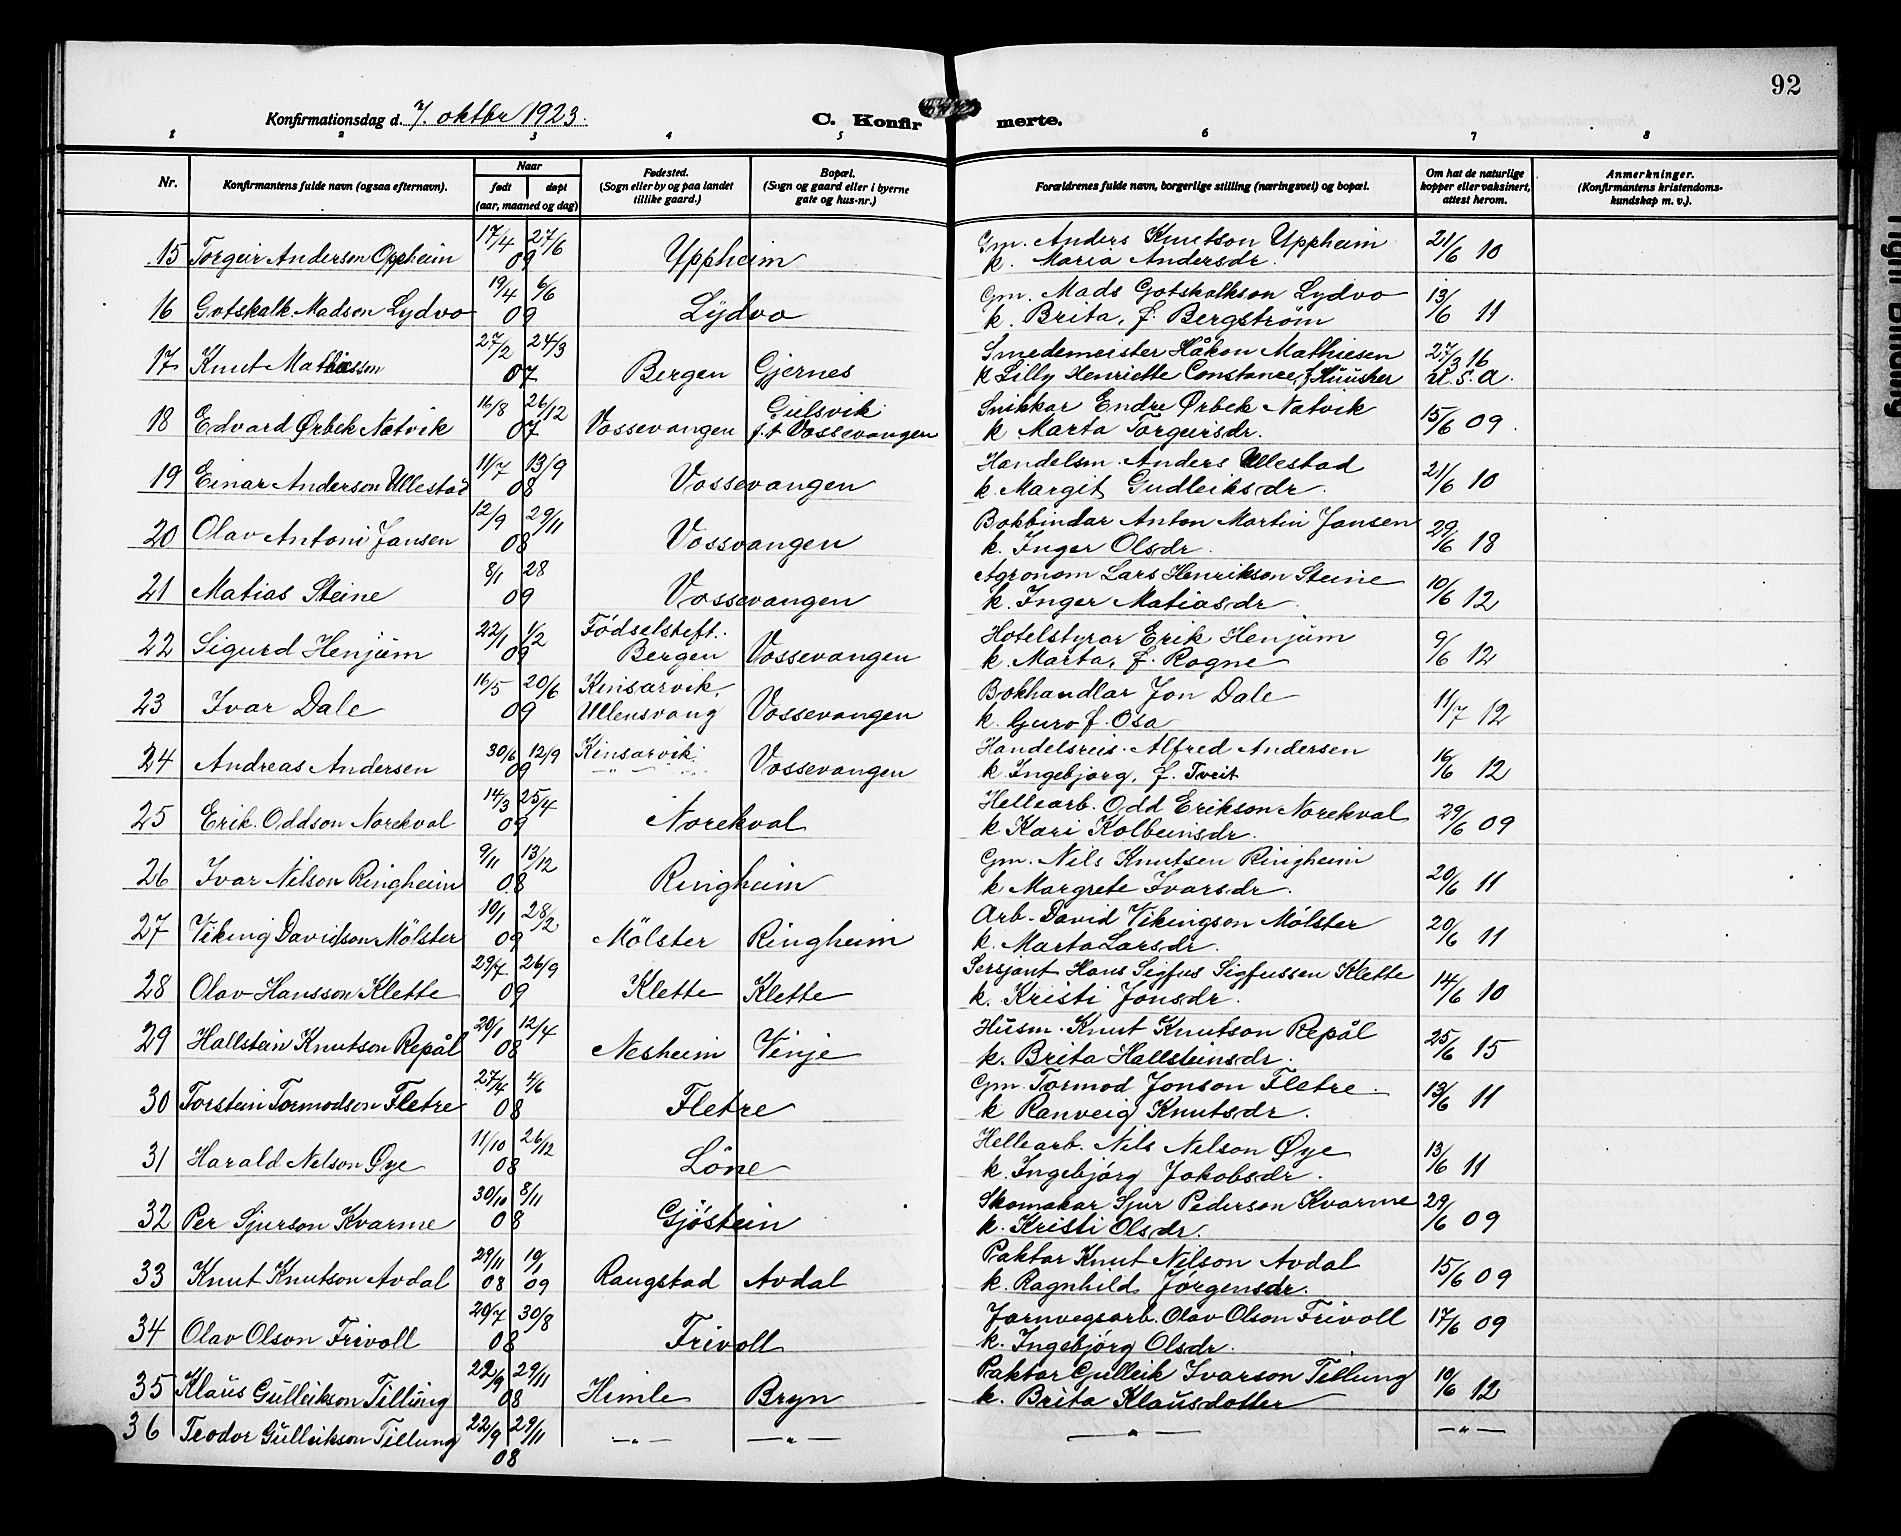 92
Konfirmationsdag d. 7. oktbr 1923.
C. Konfirmerte.
1 2 3 4 5 6 7 8
Nr. | Konfirmantens fulde navn (ogsaa efternavn). | Naar født døpt (aar, maaned og dag) | Fødested. (Sogn eller by og paa landet tillike gaard.) | Bopæl. (Sogn og gaard eller i byerne gate og hus-nr.) | Forældrenes fulde navn, borgerlige stilling (næringsvei) og bopæl. | Om hat de naturlige kopper eller vaksinert, attest herom. | Anmerkninger. (Konfirmantens kristendoms-kundskap m. v.).
15 Torgeir Anderson Oppheim 17/4 27/6 09 Uppheim Gm. Anders Knutson Uppheim 21/6 10
k. Maria Andersdr.
16 Gotskalk Madson Lydvo 19/4 6/6 09 Lydvo Gm. Mads Gotskalkson Lydvo 13/6 11
k. Brita, f. Bergström
17 Knut Mathiassen 27/2 24/3 07 Bergen Gjernes Smedemeister Håkon Mathiesen 27/3 16
k Lilly Henriette Constance, f. U.S.A.
18 Edvard Ørbek Natvik 16/8 26/12 07 Vossevangen Gulsvik f.t Vossevangen Snikkar Endre Ørbek Natvik 15/6 09.
k Marta Torgeirsdr.
19 Einar Anderson Ullestad 11/7 13/9 08 Vossevangen Handelsm. Anders Ullestad 21/6 10
k. Margit Gudleiksdr.
20 Olav Antoni Jansen 12/9 29/11 08 Vossvangen Bokbindar Anton Martin Jansen 29/6 18
k. Inger Olsdr.
21 Matias Steine 8/1 28 09 Vossevangen Agronom Lars Henrikson Steine 10/6 12
k. Inger Matiasdr.
22 Sigurd Henjum 22/1 1/2 09 Födselstift. Bergen Vossevangen Hotelstyrar Erik Henjum 9/6 12
k. Marta, f. Rogne
23 Ivar Dale 16/5 20/6 09 Kinsarvik, Ullensvang Vossevangen Bokhandlar Jon Dale 11/7 12
k. Guro f. Osa
24 Andreas Andersen 30/6 12/9 09 Kinsarvik. Vossevangen Handelsreis. Alfred Andersen 16/6 12
k Ingebjorg, f. Tveit
25 Erik Oddson Norekval 14/3 25/4 09 Norekval Hellearb. Odd Erikson Norekval 29/6 09
k Kari Kolbeinsdr.
26 Ivar Nilson Ringheim 9/11 13/12 08 Ringheim Gm. Nils Knutsen Ringheim 20/6 11
k Margrete Ivarsdr.
27 Viking Davidson Mölster 19/1 28/2 09 Mölster Ringheim Arb. David Vikingson Mölster 20/6 11
k. Marta Larsdr.
28 Olav Hansson Klette 29/7 26/9 09 Klette Klette Sersjant Hans Sigfus Sigfussen Klette 14/6 10
k. Kristi Jonsdr.
29 Hallstein Knutson Repål 20/1 12/4 08 Nesheim Vinje Husm. Knut Knutson Repål 25/6 15
k. Brita Hallsteinsdr.
30 Torstein Tormodson Fletre 27/4 4/6 08 Fletre Gm. Tormod Jonson Fletre 13/6 11
k Ranveig Knutsdr.
31 Harald Nilson Øye 11/10 26/12 08 Löne Hellearb. Nils Nilson Øye 13/6 11
k. Ingebjörg Jakobsdr.
32 Per Sjurson Kvarme 30/10 8/11 08 Gjöstein Skomakar Sjur Pederson Kvarme 29/6 09
k. Kristi Olsdr.
33 Knut Knutson Avdal 29/11 08 19/1 09 Raugstad Avdal Paktar Knut Nilson Avdal 15/6 09
k. Ragnhild Jörgensdr.
34 Olav Olson Trivoll 20/7 30/8 08 Trivoll Jarnvegsarb. Olav Olson Trivoll 17/6 09
k. Ingebjörg Olsdr.
35 Klaus Gulleikson Tillung 22/9 29/11 08 Himle Bryn Paktar Gulleik Ivarson Tillung 10/6 12
k. Brita Klausdotter
36 Teodor Gulleikson Tillung 22/9 29/11 08 —"— —"— —"— —"—